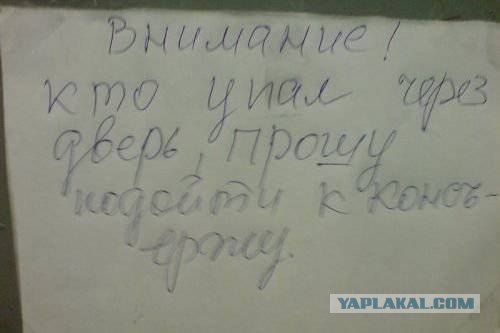 Внимание!
кто упал через
дверь, прошу
подойти к консъ-
ержу.
YAPLAKAL.COM